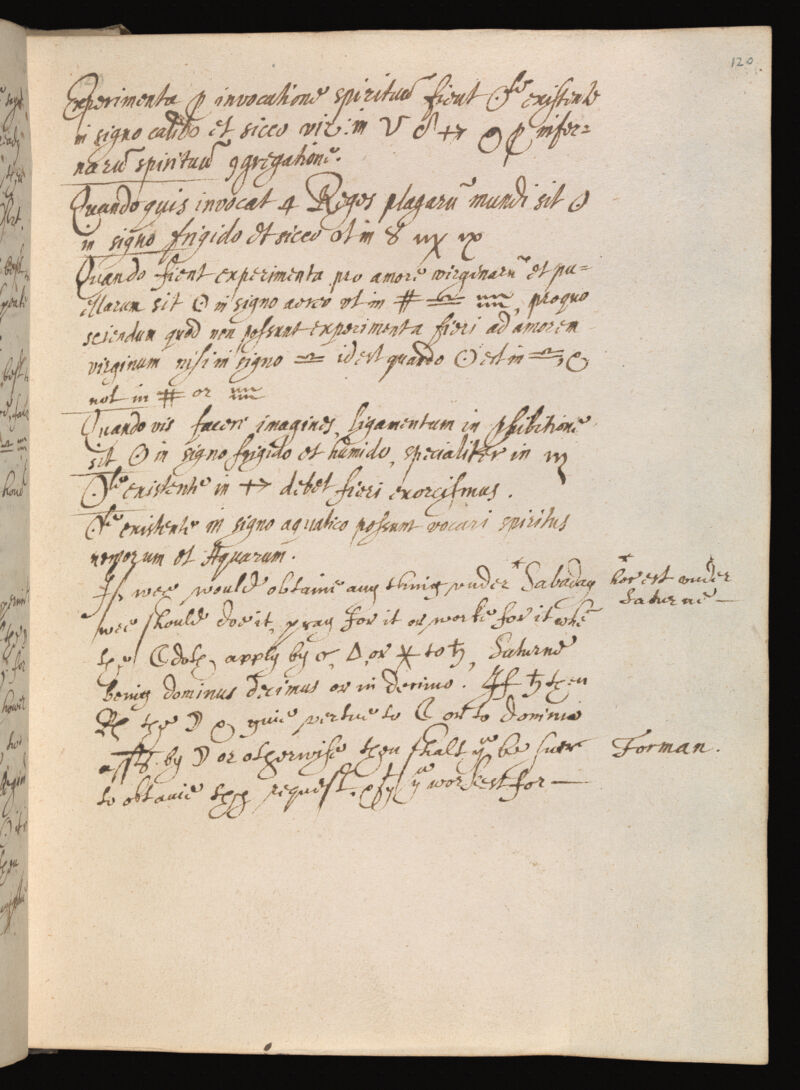 120
Experimenta ꝑ invocatione spirituū fient ☉le existente
in signo calido et sicco viz: in ♈ ♌ ♐ & ꝑ infer=
narū spirituū ꝯgregatione.
Quando quis invocat 4 Reges plagarū mundi sit ☉
in signo frigido et sicco vt in ♉ ♍ ♑
Quando fient experimenta pro amore virginarū et pu=
ellarum sit ☉ in signo aereo vt in ♊ ♎ ♒, pro quo
sciendum quod non possunt experimenta fieri ad amorem
virginum nisi in signo ♎ id est quando ☉ est in ♎, &
not in ♊ or ♒
Quando vis facere imagines, ligamentum in ꝓhibitione
sit ☉ in signo frigido et humido, specialiter in ♏
☉le existente in ♐ debet fieri exorcismus.
☉le existente in signo aquatico possunt vocari spiritus
nemorum et Aquarum.
If wee would obtaine any thing vnder * Sabaday * hoc est vnder
wee should doe it, pray for it or worke for it whē Saturne —
the ☾ doth apply by ☌, △, or ⚹ to ♄, Saturne
being dominus decimus or in decimo. If ♄ then
the ☽ & giue vertue to ☾ or to
by ☽ or otherwise then shalt yu be suer Forman.
to obtaine thy request, & yt yu workest for —